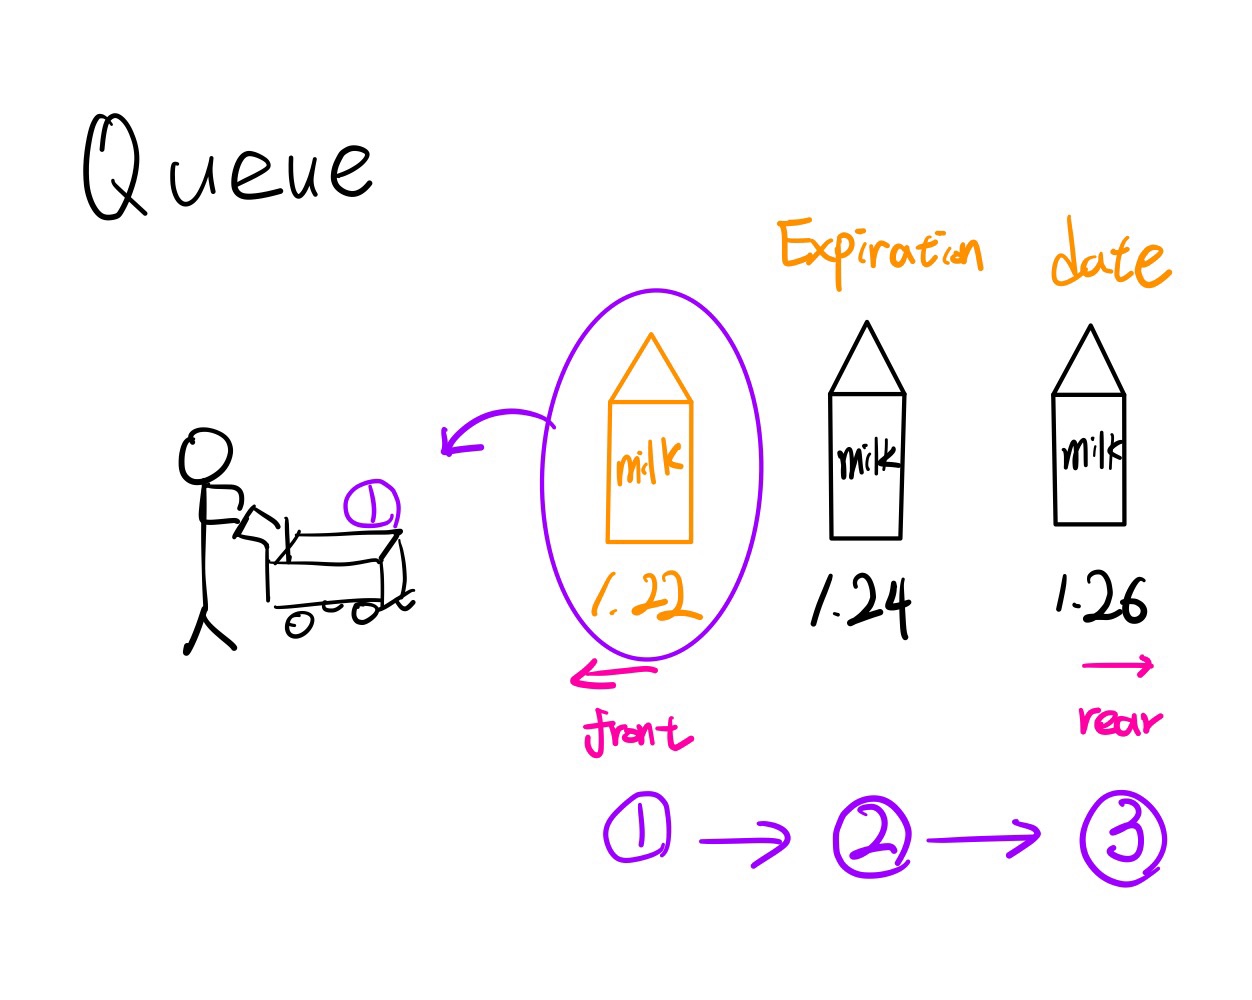 Queue
Expiration date
milk milk milk
1
1.22 1.24 1.26
front rear
1 2 3